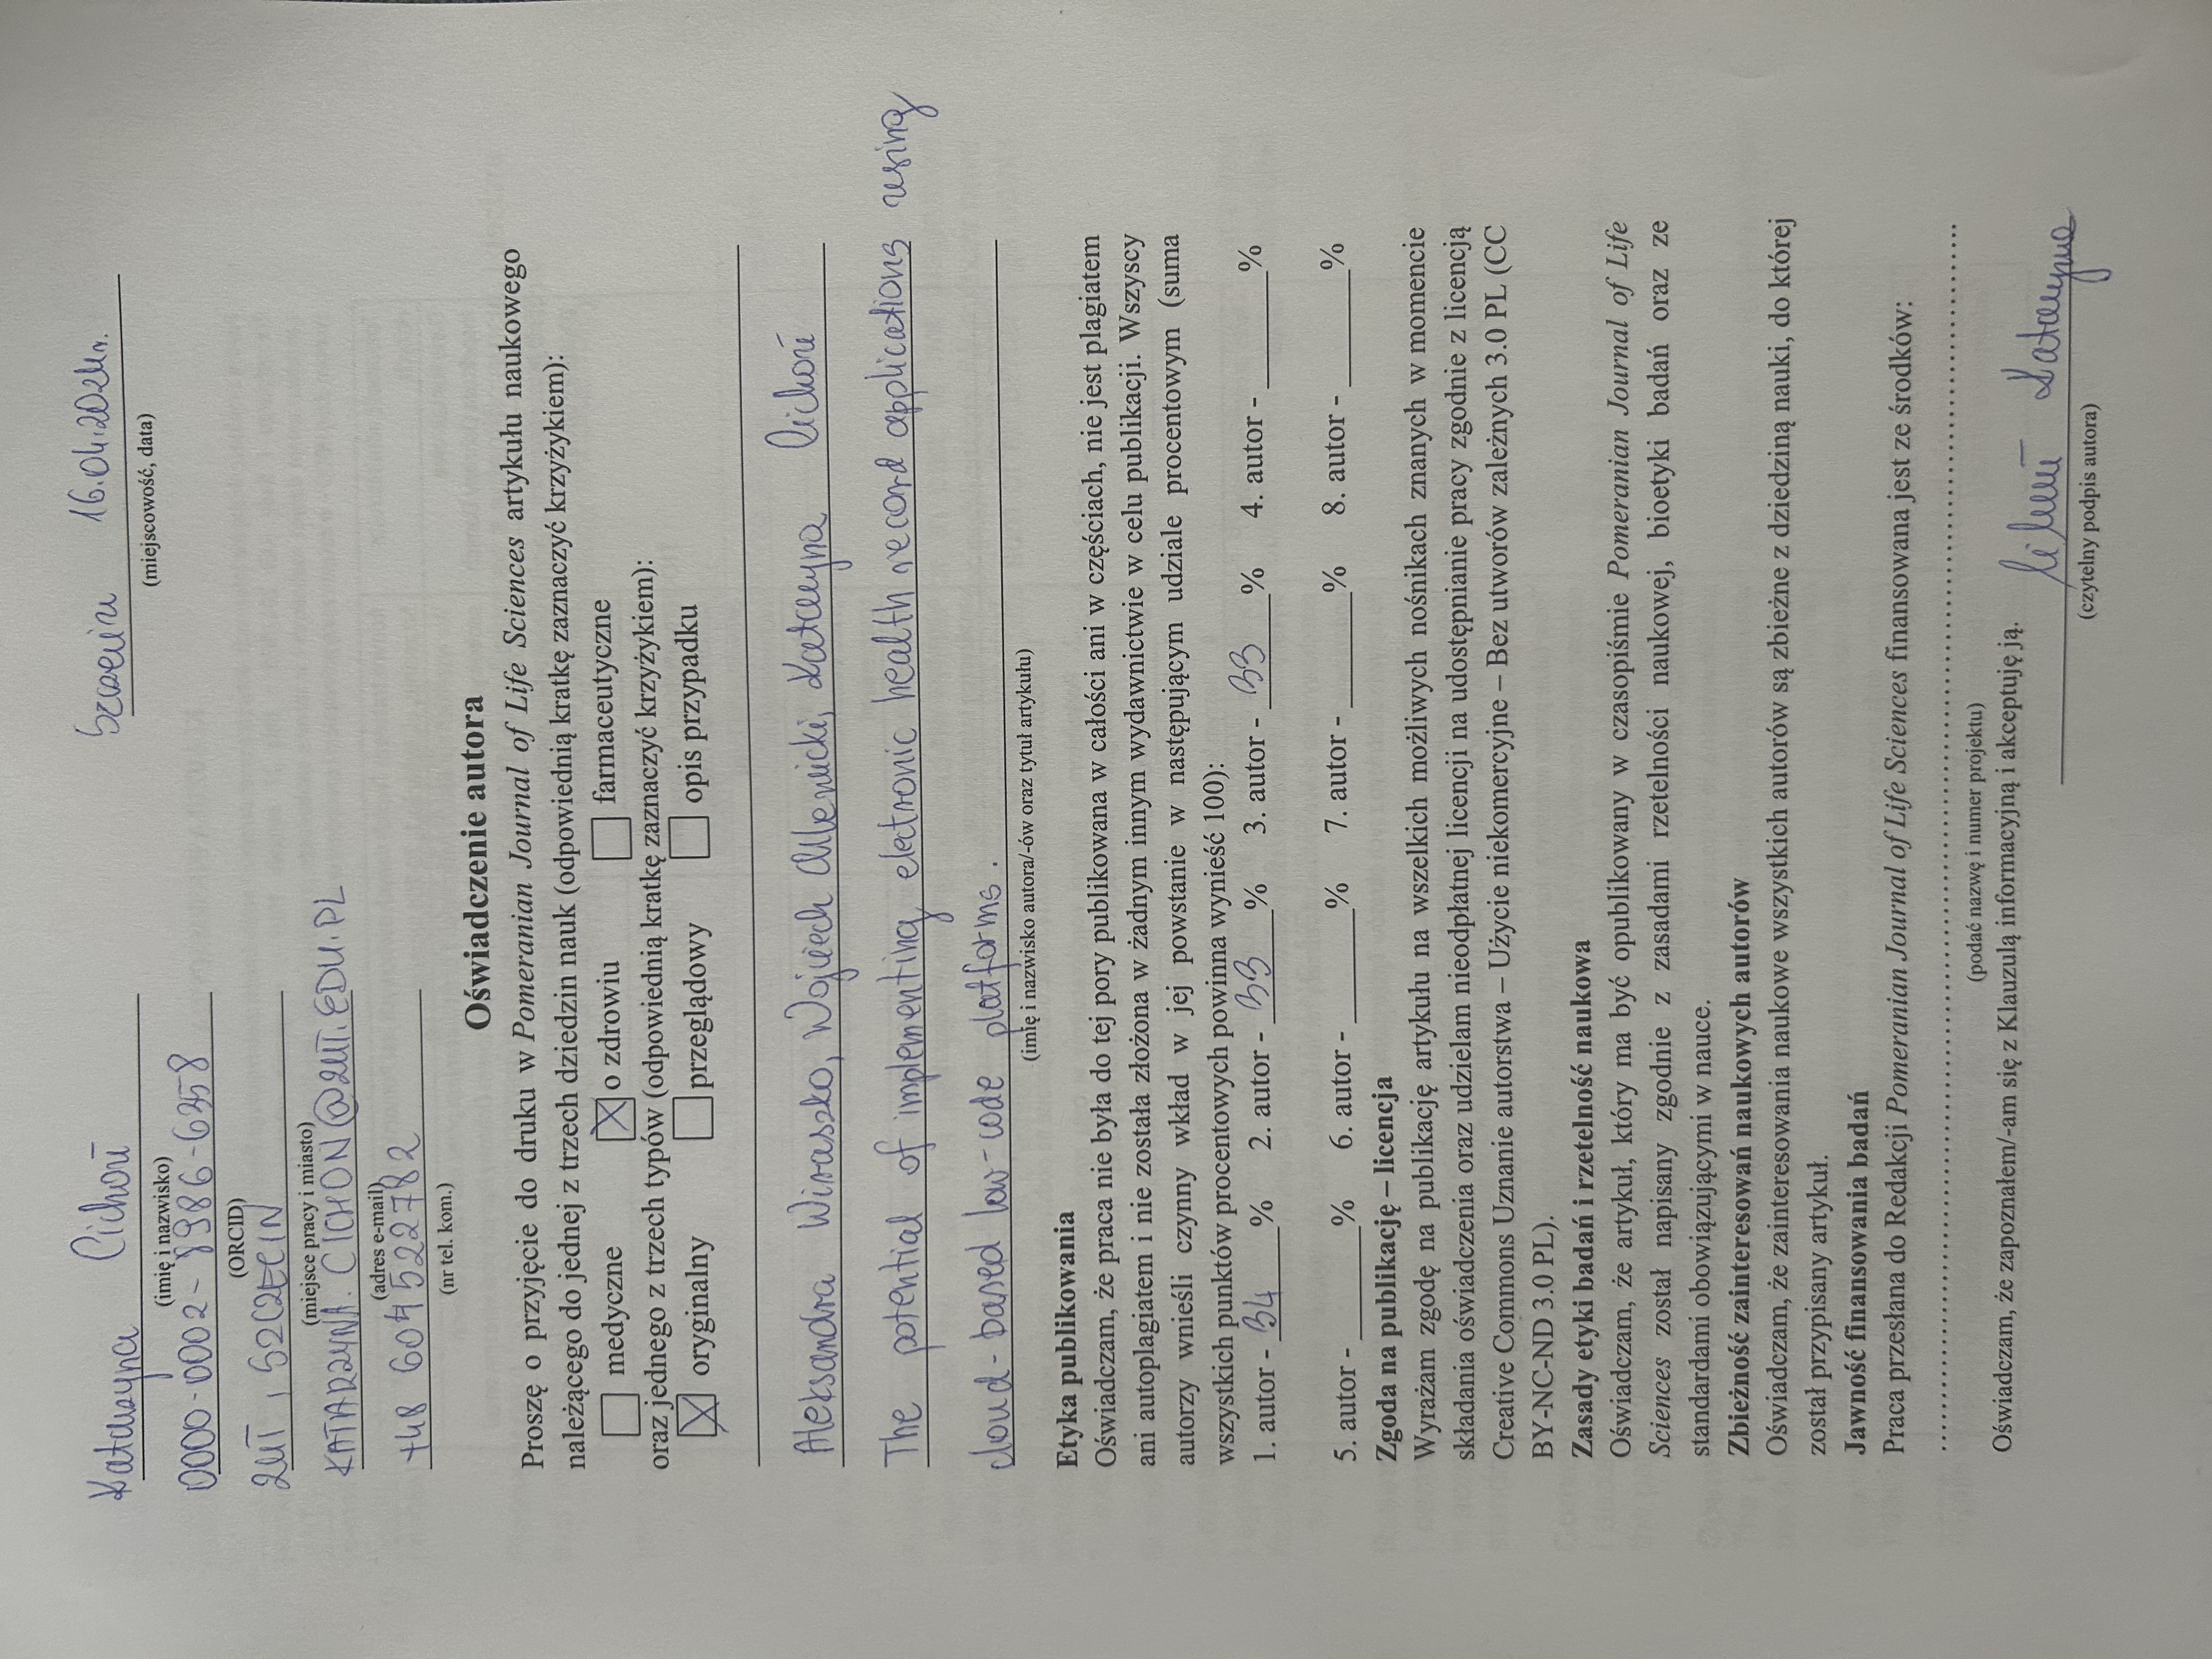 Katarzyna Cichoń
(imię i nazwisko)
Szczecin 16.04.2024r.
(miejscowość, data)
0000-0002-8986-6358
(ORCID)
ZUT, SZCZECIN
(miejsce pracy i miasto)
KATARZYNA.CICHON@ZUT.EDU.PL
(adres e-mail)
+48 604522782
(nr tel. kom.)
Oświadczenie autora
Proszę o przyjęcie do druku w Pomeranian Journal of Life Sciences artykułu naukowego
należącego do jednej z trzech dziedzin nauk (odpowiednią kratkę zaznaczyć krzyżykiem):
medyczne X o zdrowiu farmaceutyczne
oraz jednego z trzech typów (odpowiednią kratkę zaznaczyć krzyżykiem):
X oryginalny przeglądowy opis przypadku
Aleksandra Wiraszko, Wojciech Katarzyna Cichoń
The potential of implementing electronic health record applications using
cloud-based low-code platforms.
(imię i nazwisko autora/-ów oraz tytuł artykułu)
Etyka publikowania
Oświadczam, że praca nie była do tej pory publikowana w całości ani w częściach, nie jest plagiatem
ani autoplagiatem i nie została złożona w żadnym innym wydawnictwie w celu publikacji. Wszyscy
autorzy wnieśli czynny wkład w jej powstanie w następującym udziale procentowym (suma
wszystkich punktów procentowych powinna wynieść 100):
1. autor - 34 % 2. autor - 33 % 3. autor - 33 % 4. autor - ______%
5. autor - ______% 6. autor - ______% 7. autor - ______% 8. autor - ______%
Zgoda na publikację – licencja
Wyrażam zgodę na publikację artykułu na wszelkich możliwych nośnikach znanych w momencie
składania oświadczenia oraz udzielam nieodpłatnej licencji na udostępnianie pracy zgodnie z licencją
Creative Commons Uznanie autorstwa – Użycie niekomercyjne – Bez utworów zależnych 3.0 PL (CC
BY-NC-ND 3.0 PL).
Zasady etyki badań i rzetelność naukowa
Oświadczam, że artykuł, który ma być opublikowany w czasopiśmie Pomeranian Journal of Life
Sciences został napisany zgodnie z zasadami rzetelności naukowej, bioetyki badań oraz ze
standardami obowiązującymi w nauce.
Zbieżność zainteresowań naukowych autorów
Oświadczam, że zainteresowania naukowe wszystkich autorów są zbieżne z dziedziną nauki, do której
został przypisany artykuł.
Jawność finansowania badań
Praca przesłana do Redakcji Pomeranian Journal of Life Sciences finansowana jest ze środków:
(podać nazwę i numer projektu)
Oświadczam, że zapoznałem/-am się z Klauzulą informacyjną i akceptuję ją.
Cichoń Katarzyna
(czytelny podpis autora)